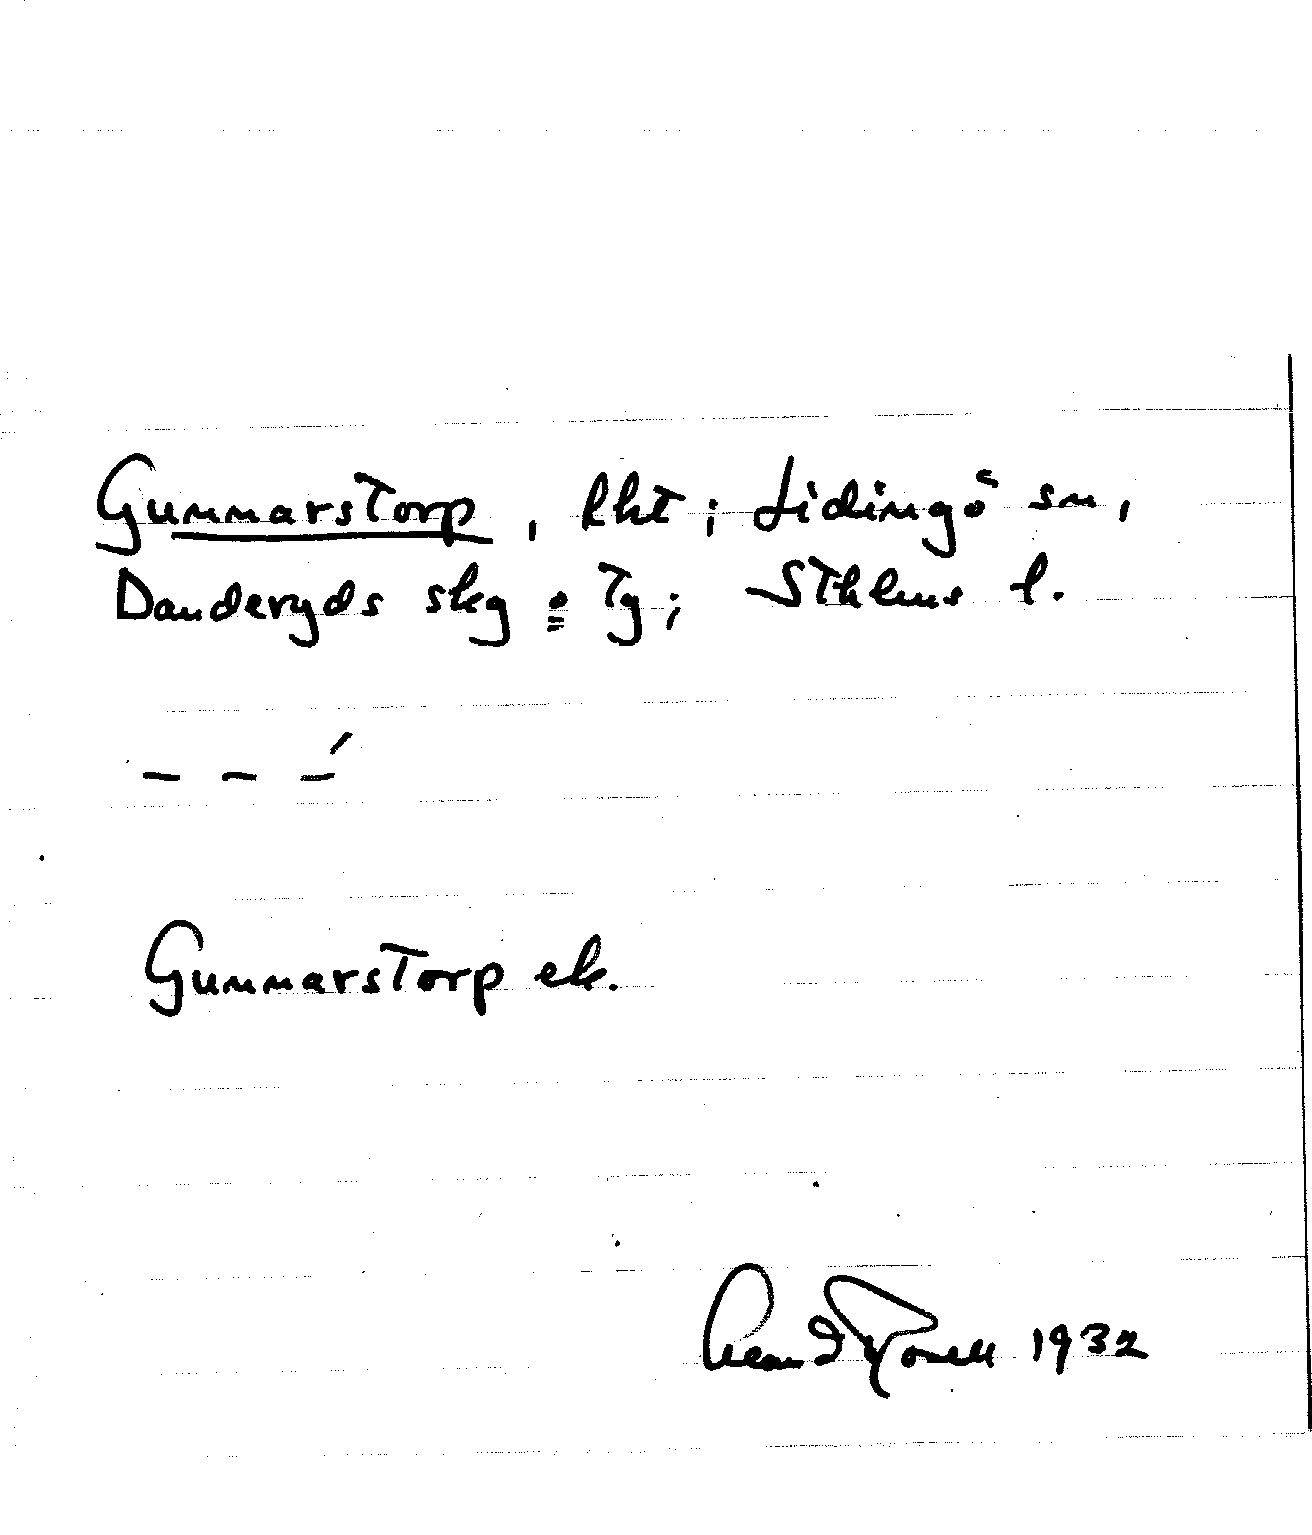 Gunnarstorp, lht; Lidingö sn,
Danderyds skg o Tg; Sthlms l.
– – –́
Gunnarstorp ek.
1932